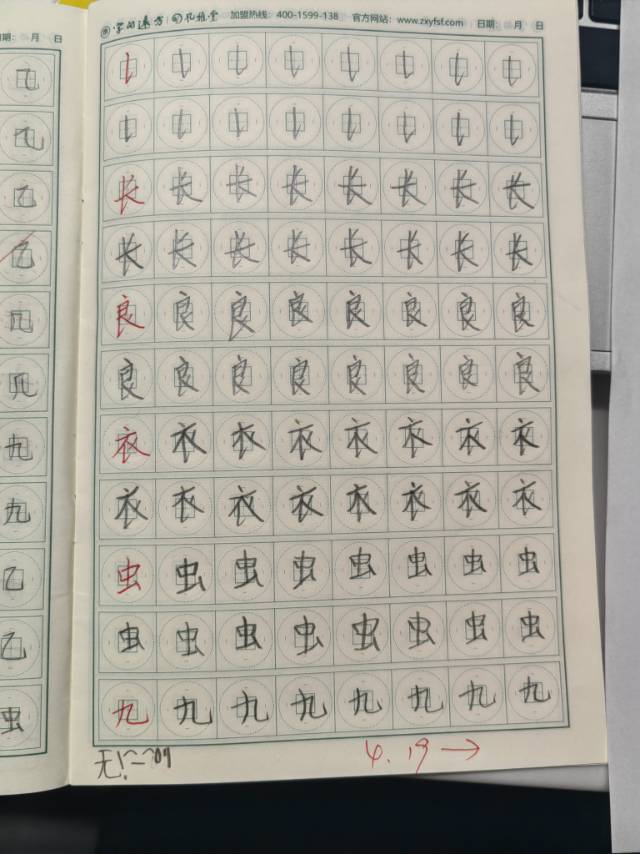 字的连方 孔雅堂 加盟热线：400-1599-138 官方网站：www.zxyfsf.com 日期： 月 日
期： 月 日
长长长长长长长长
长长长长长长长长
良良良良良良良良
良良良良良良良良
衣衣衣衣衣衣衣衣
衣衣衣衣衣衣衣衣
虫虫虫虫虫虫虫虫
虫虫虫虫虫虫虫虫
九九九九九九九九
九
九
乙
乙
虫
4.19→